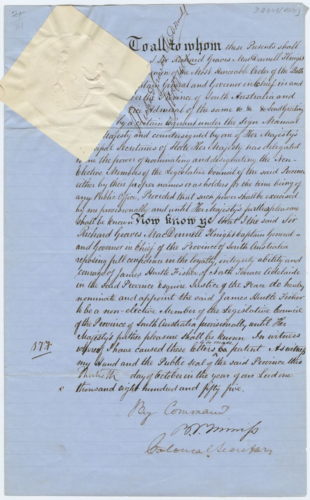 To all to whom these Presents shall
Sir Richard Graves MacDonnell Knight
of the Most Honorable Order of the Bath
Captain General and Governor in Chief in and
Province of South Australia and
of the same
by a certain Instrument under the Sign Manual
Majesty and countersigned by one of Her Majesty's
Principal Secretaries of State Her Majesty was delegated
the power of nominating and designating the Non-
Elective Members of the Legislative Council of the said Province
either by their proper names or as holders for the time being of
any Public Office Provided that
be provisionally and until Her Majesty's
shall be known Now know ye that I the said Sir
Richard Graves MacDonnell Knight Captain General
and Governor in Chief of the Province of South Australia
reposing full confidence in the loyalty integrity ability and
courage of James Hurtle Fisher of South Terrace Adelaide
in the said Province Esquire Justice of the Peace do hereby
nominate and appoint the said James Hurtle Fisher
to be a non-elective Member of the Legislative Council
of the Province of South Australia provisionally until Her
Majesty's further pleasure shall be known In witness
177 whereof I have caused these letters to be made patent
my Hand and the Public Seal of the said Province this
day of October in the year of our Lord one
thousand eight hundred and fifty five.
By Command
Colonial Secretary